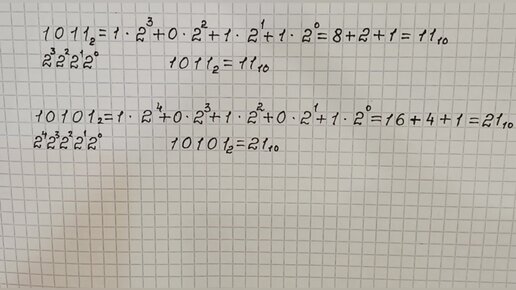 1011₂=1·2³+0·2²+1·2¹+1·2⁰=8+2+1=11₁₀
2³2²2¹2⁰ 1011₂=11₁₀
10101₂=1·2⁴+0·2³+1·2²+0·2¹+1·2⁰=16+4+1=21₁₀
2⁴2³2²2¹2⁰ 10101₂=21₁₀